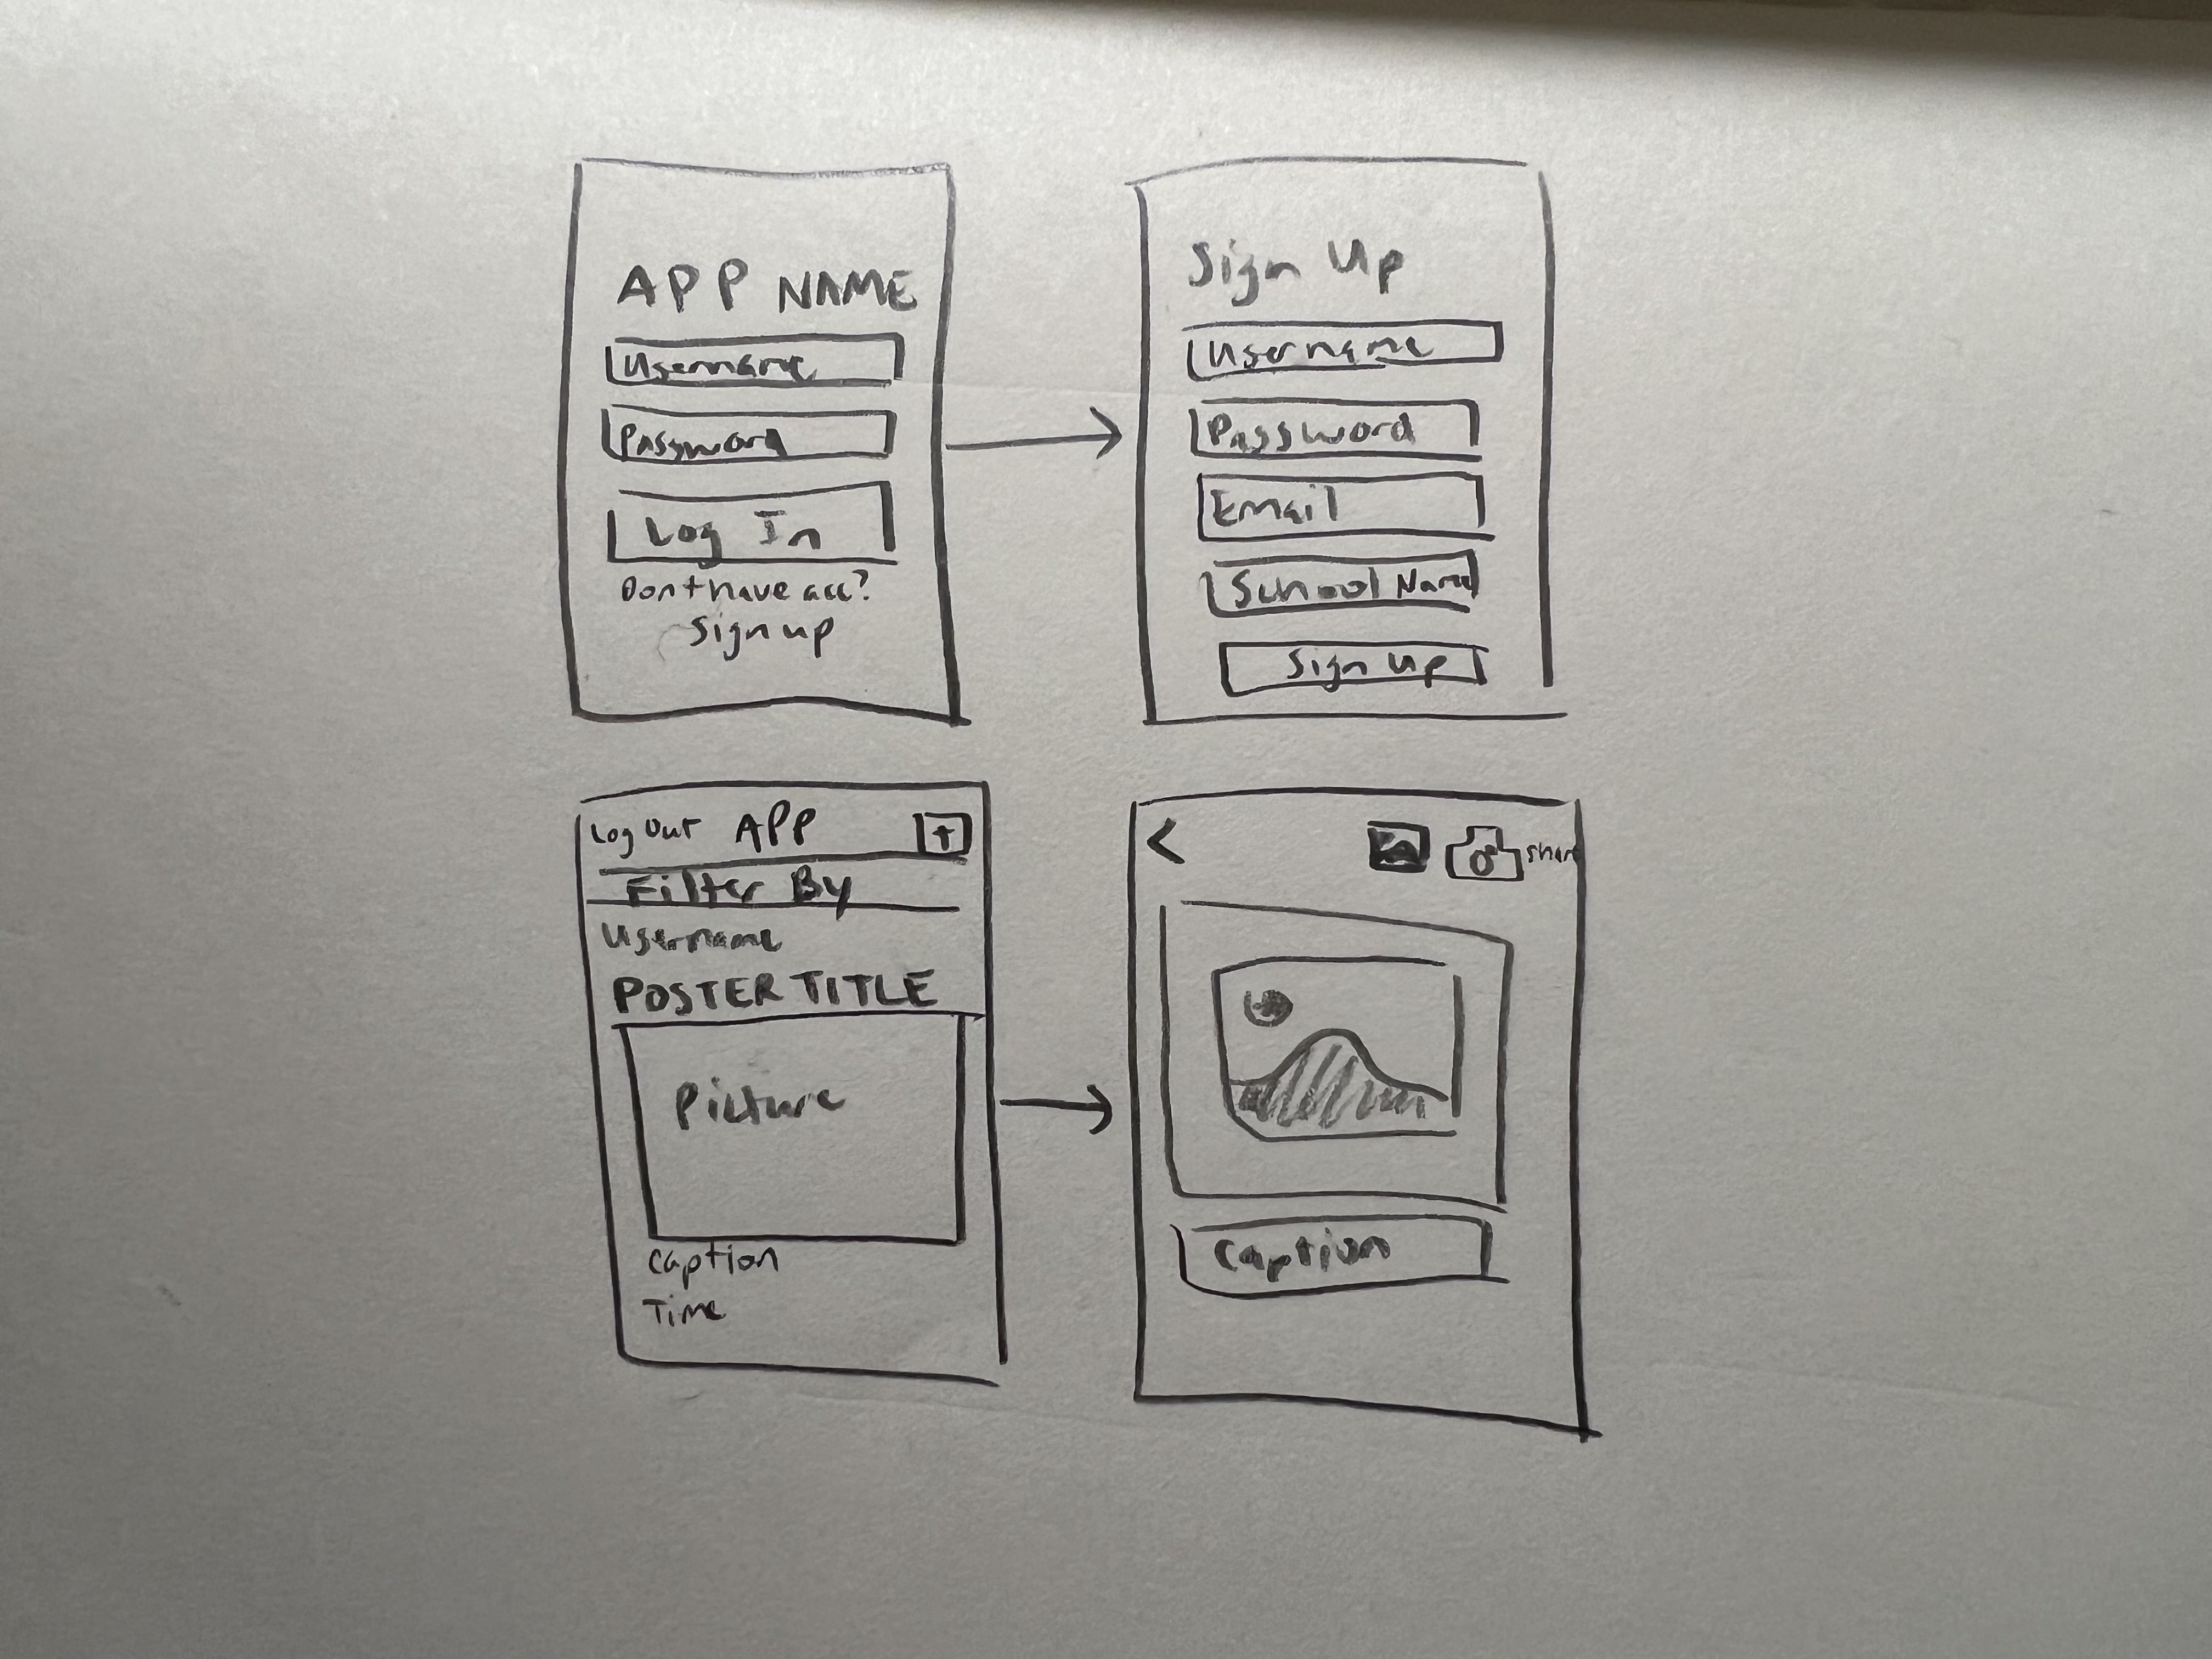 APP NAME
Username
Password
Log In
Dont have acc?
Sign up
Sign Up
Username
Password
Email
School Name
Sign Up
Log Out APP +
Filter By
Username
POSTER TITLE
Picture
Caption
Time
< share
Caption